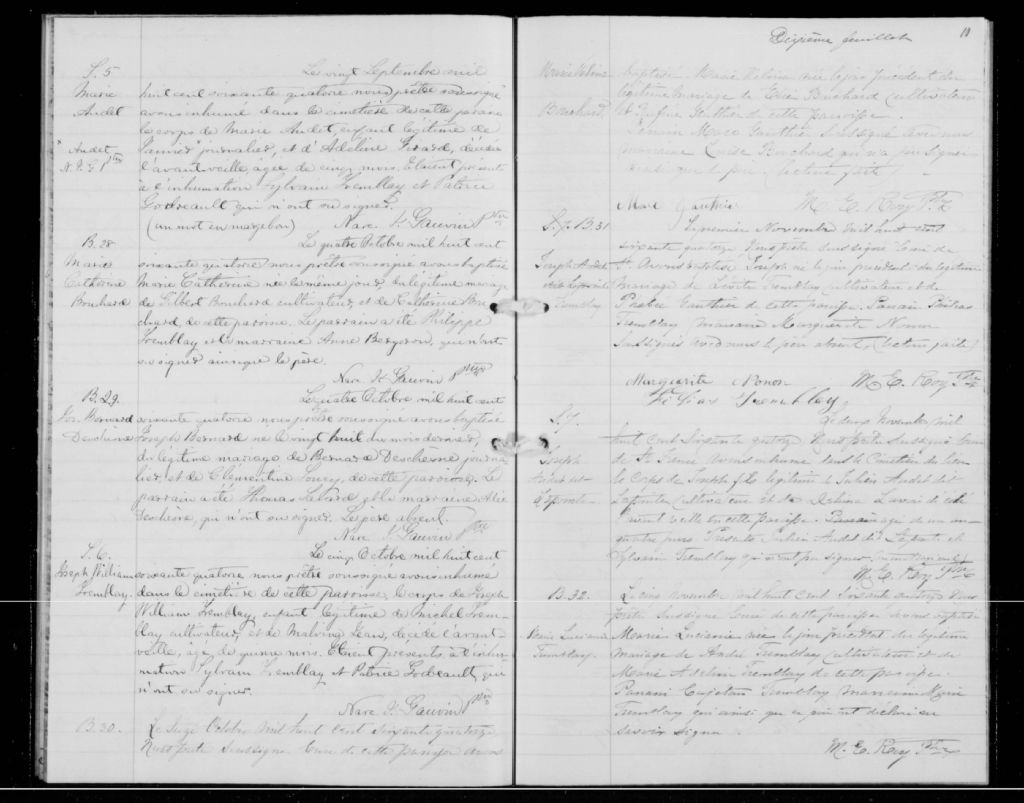 S. 5
Marie
Audet
Audet
N. J. G Ptre
Le vingt Septembre mil
huit cent soixante quatorze nous prêtre soussigné
avons inhumé dans le cimetière de cette paroisse
le corps de Marie Audet, enfant légitime de
Janvier journalier, et d'Adeline Girard, décédée
l'avant veille, agée de cinq mois. Etaient présents
à l'inhumation Sylvain Tremblay et Patrice
Godreault qui n'ont su signer.
(un mot en marge bon) Narc. J. Gauvin Ptre
B. 28
Marie
Catherine
Bouchard
Le quatre Octobre mil huit cent
soixante quatorze nous prêtre soussigné avons baptisé
Marie Catherine née le même jour du légitime mariage
de Gilbert Bouchard cultivateur et de Catherine Bou
chard, de cette paroisse. Le parrain a été Philippe
Tremblay et la marraine Anne Bergeron, qui n'ont
su signer ainsi que le père.
Narc. J. Gauvin Ptre
B. 29
Jos. Bernard
Deschesne
Le quatre Octobre mil huit cent
soixante quatorze nous prêtre soussigné avons baptisé
Joseph Bernard né le vingt huit du mois dernier,
du légitime mariage de Bernard Deschesne journa
lier, et de Clémentine Tousy, de cette paroisse. Le
parrain a été Thomas et la marraine
Deschesne, qui n'ont su signer. Le père absent.
Narc. J. Gauvin Ptre
S. 6.
Joseph William
Tremblay.
Le cinq Octobre mil huit cent
soixante quatorze nous prêtre soussigné avons inhumé
dans le cimetière de cette paroisse le corps de Joseph
William Tremblay, enfant légitime de Michel Trem-
blay cultivateur, et de Malvina Jean, décédé l'avant
veille, agé de quinze mois. Etaient présents à l'inhu-
mation Sylvain Tremblay et Patrice Godreault, qui
n'ont su signer.
Narc. J. Gauvin Ptre
B. 30.
Le Seize Octobre mil huit cent soixante quatorze
Nous prêtre Soussigné Curé de cette paroisse avons
Dixième feuillet
10
Marie Délima
Bouchard
baptisé Marie Délima née le jour précédent du
légitime mariage de Elie Bouchard cultivateur
et Gauthier de cette paroisse.
Parrain Marc Gauthier Soussigné avec nous
marraine Louise Bouchard qui n'a pu signer
ainsi que le père. Lecture faite
Marc Gauthier M. E. Roy Ptre
B. 31
Joseph
Tremblay
Le premier Novembre mil huit cent
soixante quatorze Nous prêtre Soussigné Curé de
St avons baptisé Joseph né le jour précédent du légitime
mariage de Tremblay cultivateur et de
Phebée Gauthier de cette paroisse. Parrain Phidias
Tremblay marraine Marguerite Nonon
Soussignés avec nous le père absent. (Lecture faite)
Marguerite Nonon M. E. Roy Ptre
Fidias Tremblay
S. 7.
Joseph
Audet dit
Lapointe
Le Novembre mil
huit cent Soixante quatorze Nous prêtre Soussigné Curé
de St avons inhumé dans le Cimetière du lieu
le Corps de Joseph fils légitime de Julien Audet dit
Lapointe Cultivateur et de décé
dé veille en cette paroisse. agé de un an
quatre jours. Présents Julien Audet dit Lapointe et
Sylvain Tremblay qui n'ont pu signer
M. E. Roy Ptre
B. 32.
Marie Lucienne
Tremblay.
Le Novembre mil huit cent Soixante quatorze Nous
prêtre Soussigné Curé de cette paroisse avons baptisé
Marie Lucienne née le jour précédent du légitime
mariage de André Tremblay Cultivateur et de
Marie Adeline Tremblay de cette paroisse.
Parrain Cajetan Tremblay Marraine Marie
Tremblay qui ainsi que le père ont déclaré ne
Savoir Signer.
M. E. Roy Ptre